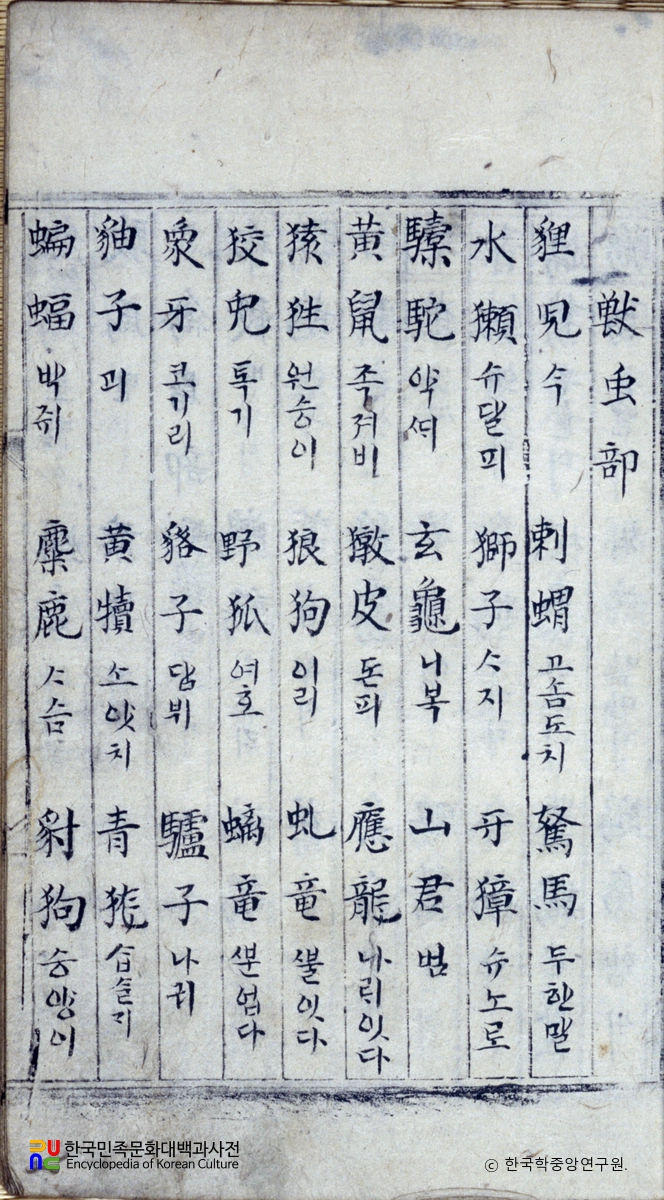 獸虫部
狸兒 수 刺蝟 고솜도치 駑馬 두한말
水獺 슈달피 獅子 ᄉᆞ지 牙獐 슈노로
騾駝 약ᄃᆡ 玄龜 니복 山君 범
黃鼠 족져비 獤皮 돈피 應龍 나릭잇다
猿狌 원숭이 狼狗 이리 虬竜 ᄲᅳᆯ잇다
狡兒 톡기 野狐 여호 螭竜 ᄲᅳᆫ업다
象牙 코기리 貉子 담뷔 驢子 나귀
貁子 괴 黃犢 소앗치 青狵 삽슬기
蝙蝠 박쥐 麋鹿 ᄉᆞ슴 豺狗 승양이
한국민족문화대백과사전
Encyclopedia of Korean Culture
© 한국학중앙연구원.